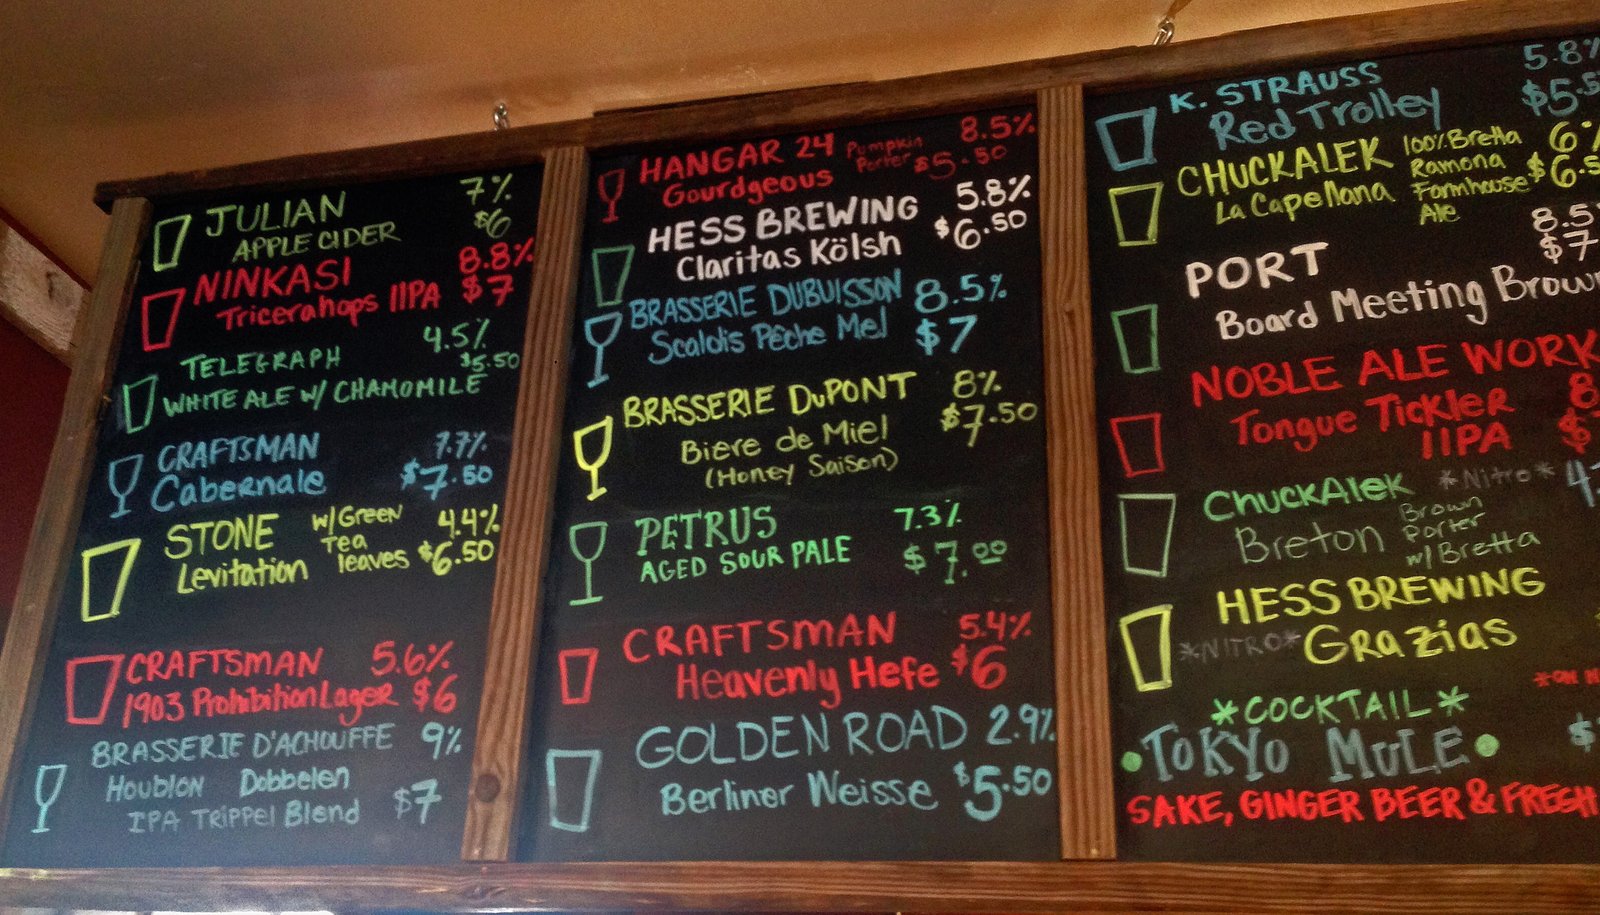 JULIAN 7%
APPLE CIDER $6
NINKASI 8.8%
Tricerahops IIPA $7
TELEGRAPH 4.5%
$5.50
WHITE ALE W/ CHAMOMILE
CRAFTSMAN 7.7%
Cabernale $7.50
STONE W/Green 4.4%
Tea
Levitation leaves $6.50
CRAFTSMAN 5.6%
1903 Prohibition Lager $6
BRASSERIE D'ACHOUFFE 9%
Houblon Dobbelen
IPA Trippel Blend $7
HANGAR 24 Pumpkin 8.5%
Gourdgeous Porter $5.50
HESS BREWING 5.8%
Claritas Kölsh $6.50
BRASSERIE DUBUISSON 8.5%
Scaldis Pêche Mel $7
BRASSERIE DuPONT 8%
Biere de Miel $7.50
(Honey Saison)
PETRUS 7.3%
AGED SOUR PALE $7.00
CRAFTSMAN 5.4%
Heavenly Hefe $6
GOLDEN ROAD 2.9%
Berliner Weisse $5.50
K. STRAUSS 5.8%
Red Trolley $5.5
CHUCKALEK 100% Bretta 6%
La Capellana Ramona $6.5
Farmhouse
Ale
PORT 8.5
$7
Board Meeting Brown
NOBLE ALE WORK
Tongue Tickler 8
IIPA $
ChuckAlek *Nitro* 4
Breton Brown
Porter
w/ Bretta
HESS BREWING
*NITRO* Grazias
*COCKTAIL* *ON
•TOKYO MULE• $
SAKE, GINGER BEER & FRESH